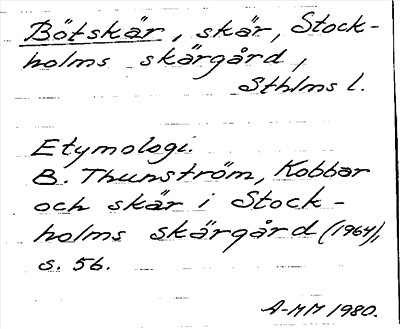 Bötskär, skär, Stock-
holms skärgård,
Sthlms l.
Etymologi.
B. Thunström, Kobbar
och skär i Stock-
holms skärgård (1964),
s. 56.
A-MM 1980.